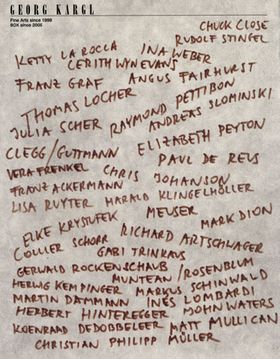 GEORG KARGL
Fine Arts since 1998
BOX since 2005
CHUCK CLOSE
RUDOLF STINGEL
KETTY LA ROCCA INA WEBER
CERITH WYN EVANS
FRANZ GRAF ANGUS FAIRHURST
THOMAS LOCHER
RAYMOND PETTIBON
JULIA SCHER ANDREAS SLOMINSKI
CLEGG/GUTTMANN ELIZABETH PEYTON
VERA FRENKEL PAUL DE REUS
CHRIS JOHANSON
FRANZ ACKERMANN
LISA RUYTER HARALD KLINGELHÖLLER
MEUSER
ELKE KRYSTUFEK MARK DION
RICHARD ARTSCHWAGER
COLLIER SCHORR
GABI TRINKAUS
GERWALD ROCKENSCHAUB
MUNTEAN/ROSENBLUM
HERWIG KEMPINGER MARKUS SCHINWALD
MARTIN DAMMANN INÉS LOMBARDI
HERBERT HINTEREGGER JOHN WATERS
KOENRAAD DEDOBBELEER MATT MULLICAN
CHRISTIAN PHILIPP MÜLLER